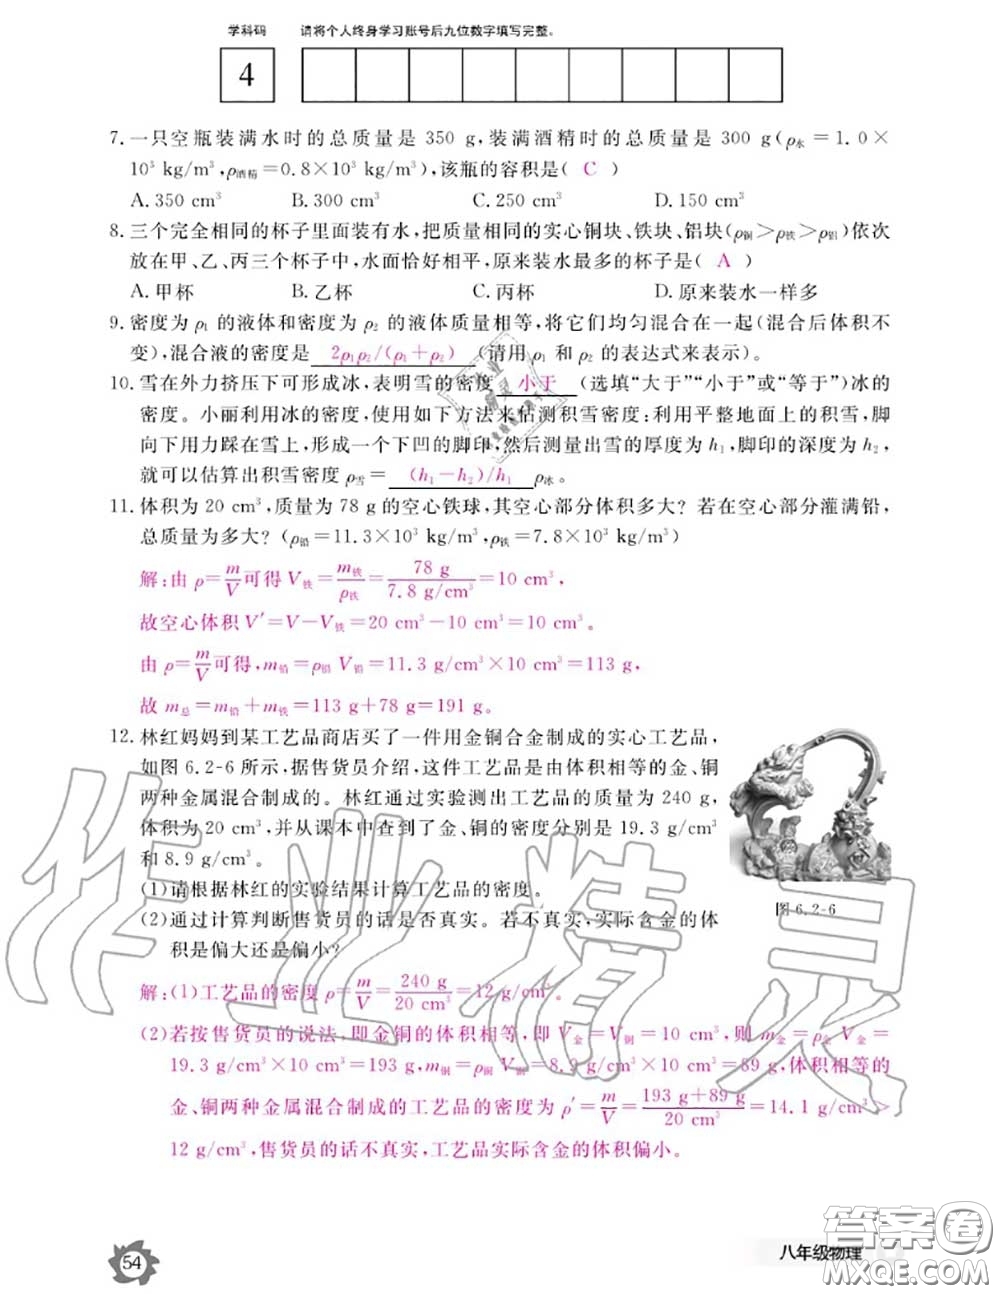 学科码 请将个人终身学习账号后九位数字填写完整。
4
7. 一只空瓶装满水时的总质量是 350 g,装满酒精时的总质量是 300 g(ρ水=1.0×
10³ kg/m³,ρ酒精=0.8×10³ kg/m³),该瓶的容积是( C )
A. 350 cm³ B. 300 cm³ C. 250 cm³ D. 150 cm³
8. 三个完全相同的杯子里面装有水,把质量相同的实心铜块、铁块、铝块(ρ铜>ρ铁>ρ铝)依次
放在甲、乙、丙三个杯子中,水面恰好相平,原来装水最多的杯子是( A )
A. 甲杯 B. 乙杯 C. 丙杯 D. 原来装水一样多
9. 密度为 ρ₁ 的液体和密度为 ρ₂ 的液体质量相等,将它们均匀混合在一起(混合后体积不
变),混合液的密度是 2ρ₁ρ₂/(ρ₁+ρ₂) (请用 ρ₁ 和 ρ₂ 的表达式来表示)。
10. 雪在外力挤压下可形成冰,表明雪的密度 小于 (选填“大于”“小于”或“等于”)冰的
密度。小丽利用冰的密度,使用如下方法来估测积雪密度:利用平整地面上的积雪,脚
向下用力踩在雪上,形成一个下凹的脚印,然后测量出雪的厚度为 h₁,脚印的深度为 h₂,
就可以估算出积雪密度 ρ雪= (h₁-h₂)/h₁ ρ冰。
11. 体积为 20 cm³,质量为 78 g 的空心铁球,其空心部分体积多大?若在空心部分灌满铅,
总质量为多大?(ρ铅=11.3×10³ kg/m³,ρ铁=7.8×10³ kg/m³)
解:由 ρ=m/V可得 V铁=m铁/ρ铁=78 g/7.8 g/cm³=10 cm³,
故空心体积 V′=V-V铁=20 cm³-10 cm³=10 cm³。
由 ρ=m/V可得,m铅=ρ铅 V铅=11.3 g/cm³×10 cm³=113 g,
故 m总=m铅+m铁=113 g+78 g=191 g。
12. 林红妈妈到某工艺品商店买了一件用金铜合金制成的实心工艺品,
如图 6.2-6 所示,据售货员介绍,这件工艺品是由体积相等的金、铜
两种金属混合制成的。林红通过实验测出工艺品的质量为 240 g,
体积为 20 cm³,并从课本中查到了金、铜的密度分别是 19.3 g/cm³
和 8.9 g/cm³。
(1)请根据林红的实验结果计算工艺品的密度。
(2)通过计算判断售货员的话是否真实。若不真实,实际含金的体
积是偏大还是偏小?
图 6.2-6
解:(1)工艺品的密度 ρ=m/V=240 g/20 cm³=12 g/cm³。
(2)若按售货员的说法,即金铜的体积相等,即 V金=V铜=10 cm³,则 m金=ρ金 V金=
19.3 g/cm³×10 cm³=193 g,m铜=ρ铜 V铜=8.9 g/cm³×10 cm³=89 g,体积相等的
金、铜两种金属混合制成的工艺品密度为 ρ′=m/V=193 g+89 g/20 cm³=14.1 g/cm³>
12 g/cm³,售货员的话不真实,工艺品实际含金的体积偏小。
作业精灵
54
八年级物理
答案圈
MXQE.COM